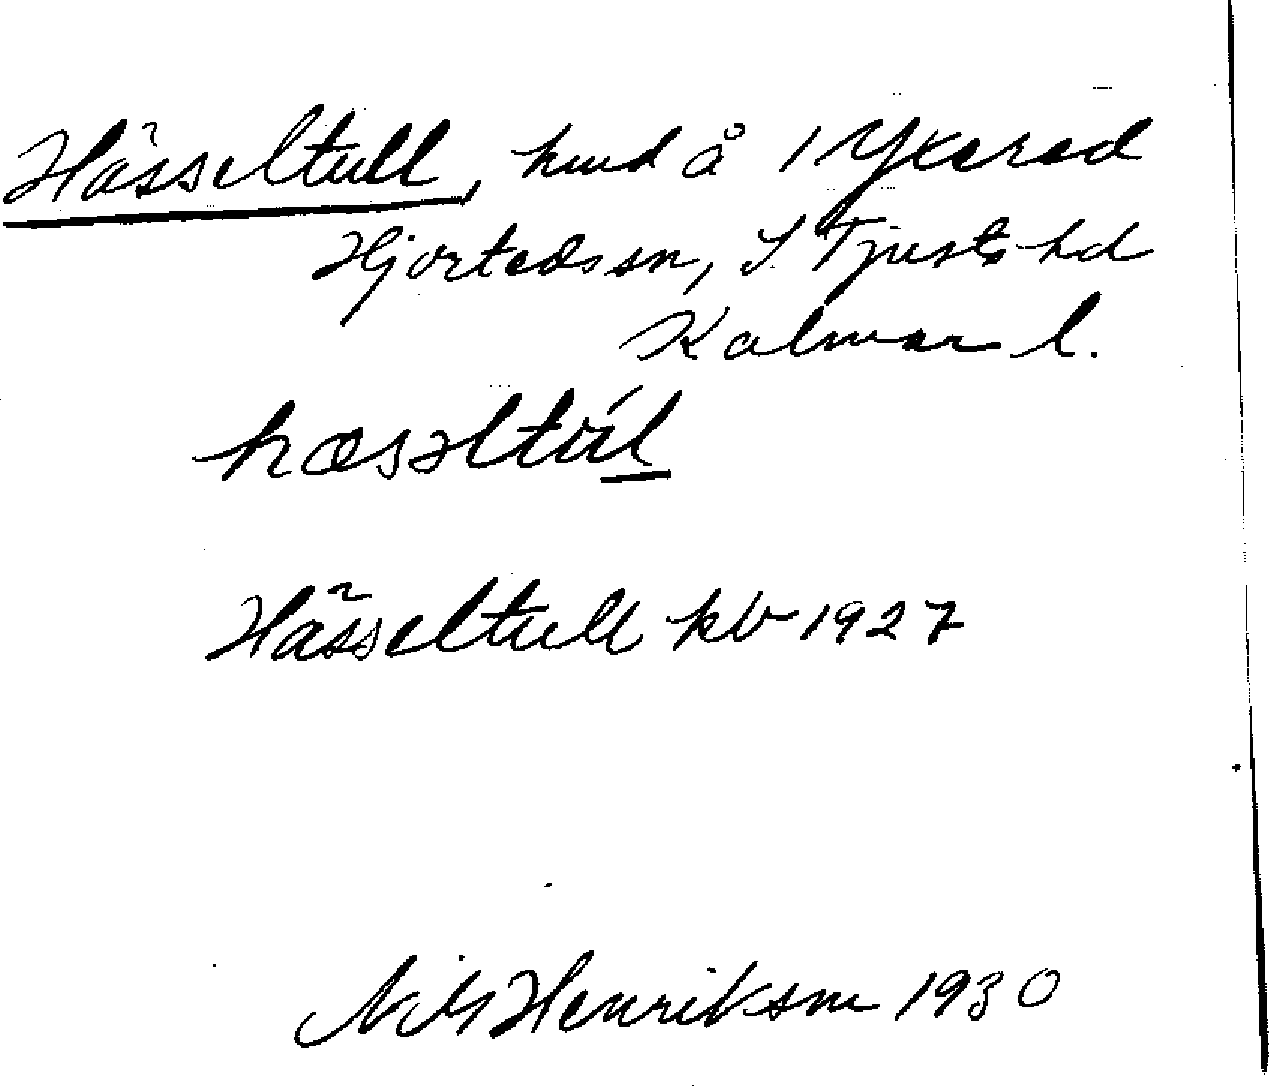 Hässeltull, hmd å 1 Ykerad
Hjorteds sn, S. Tjusts hd
Kalmar l.
hæsəltúl
Hässeltull kb 1927
Nils Henriksson 1930